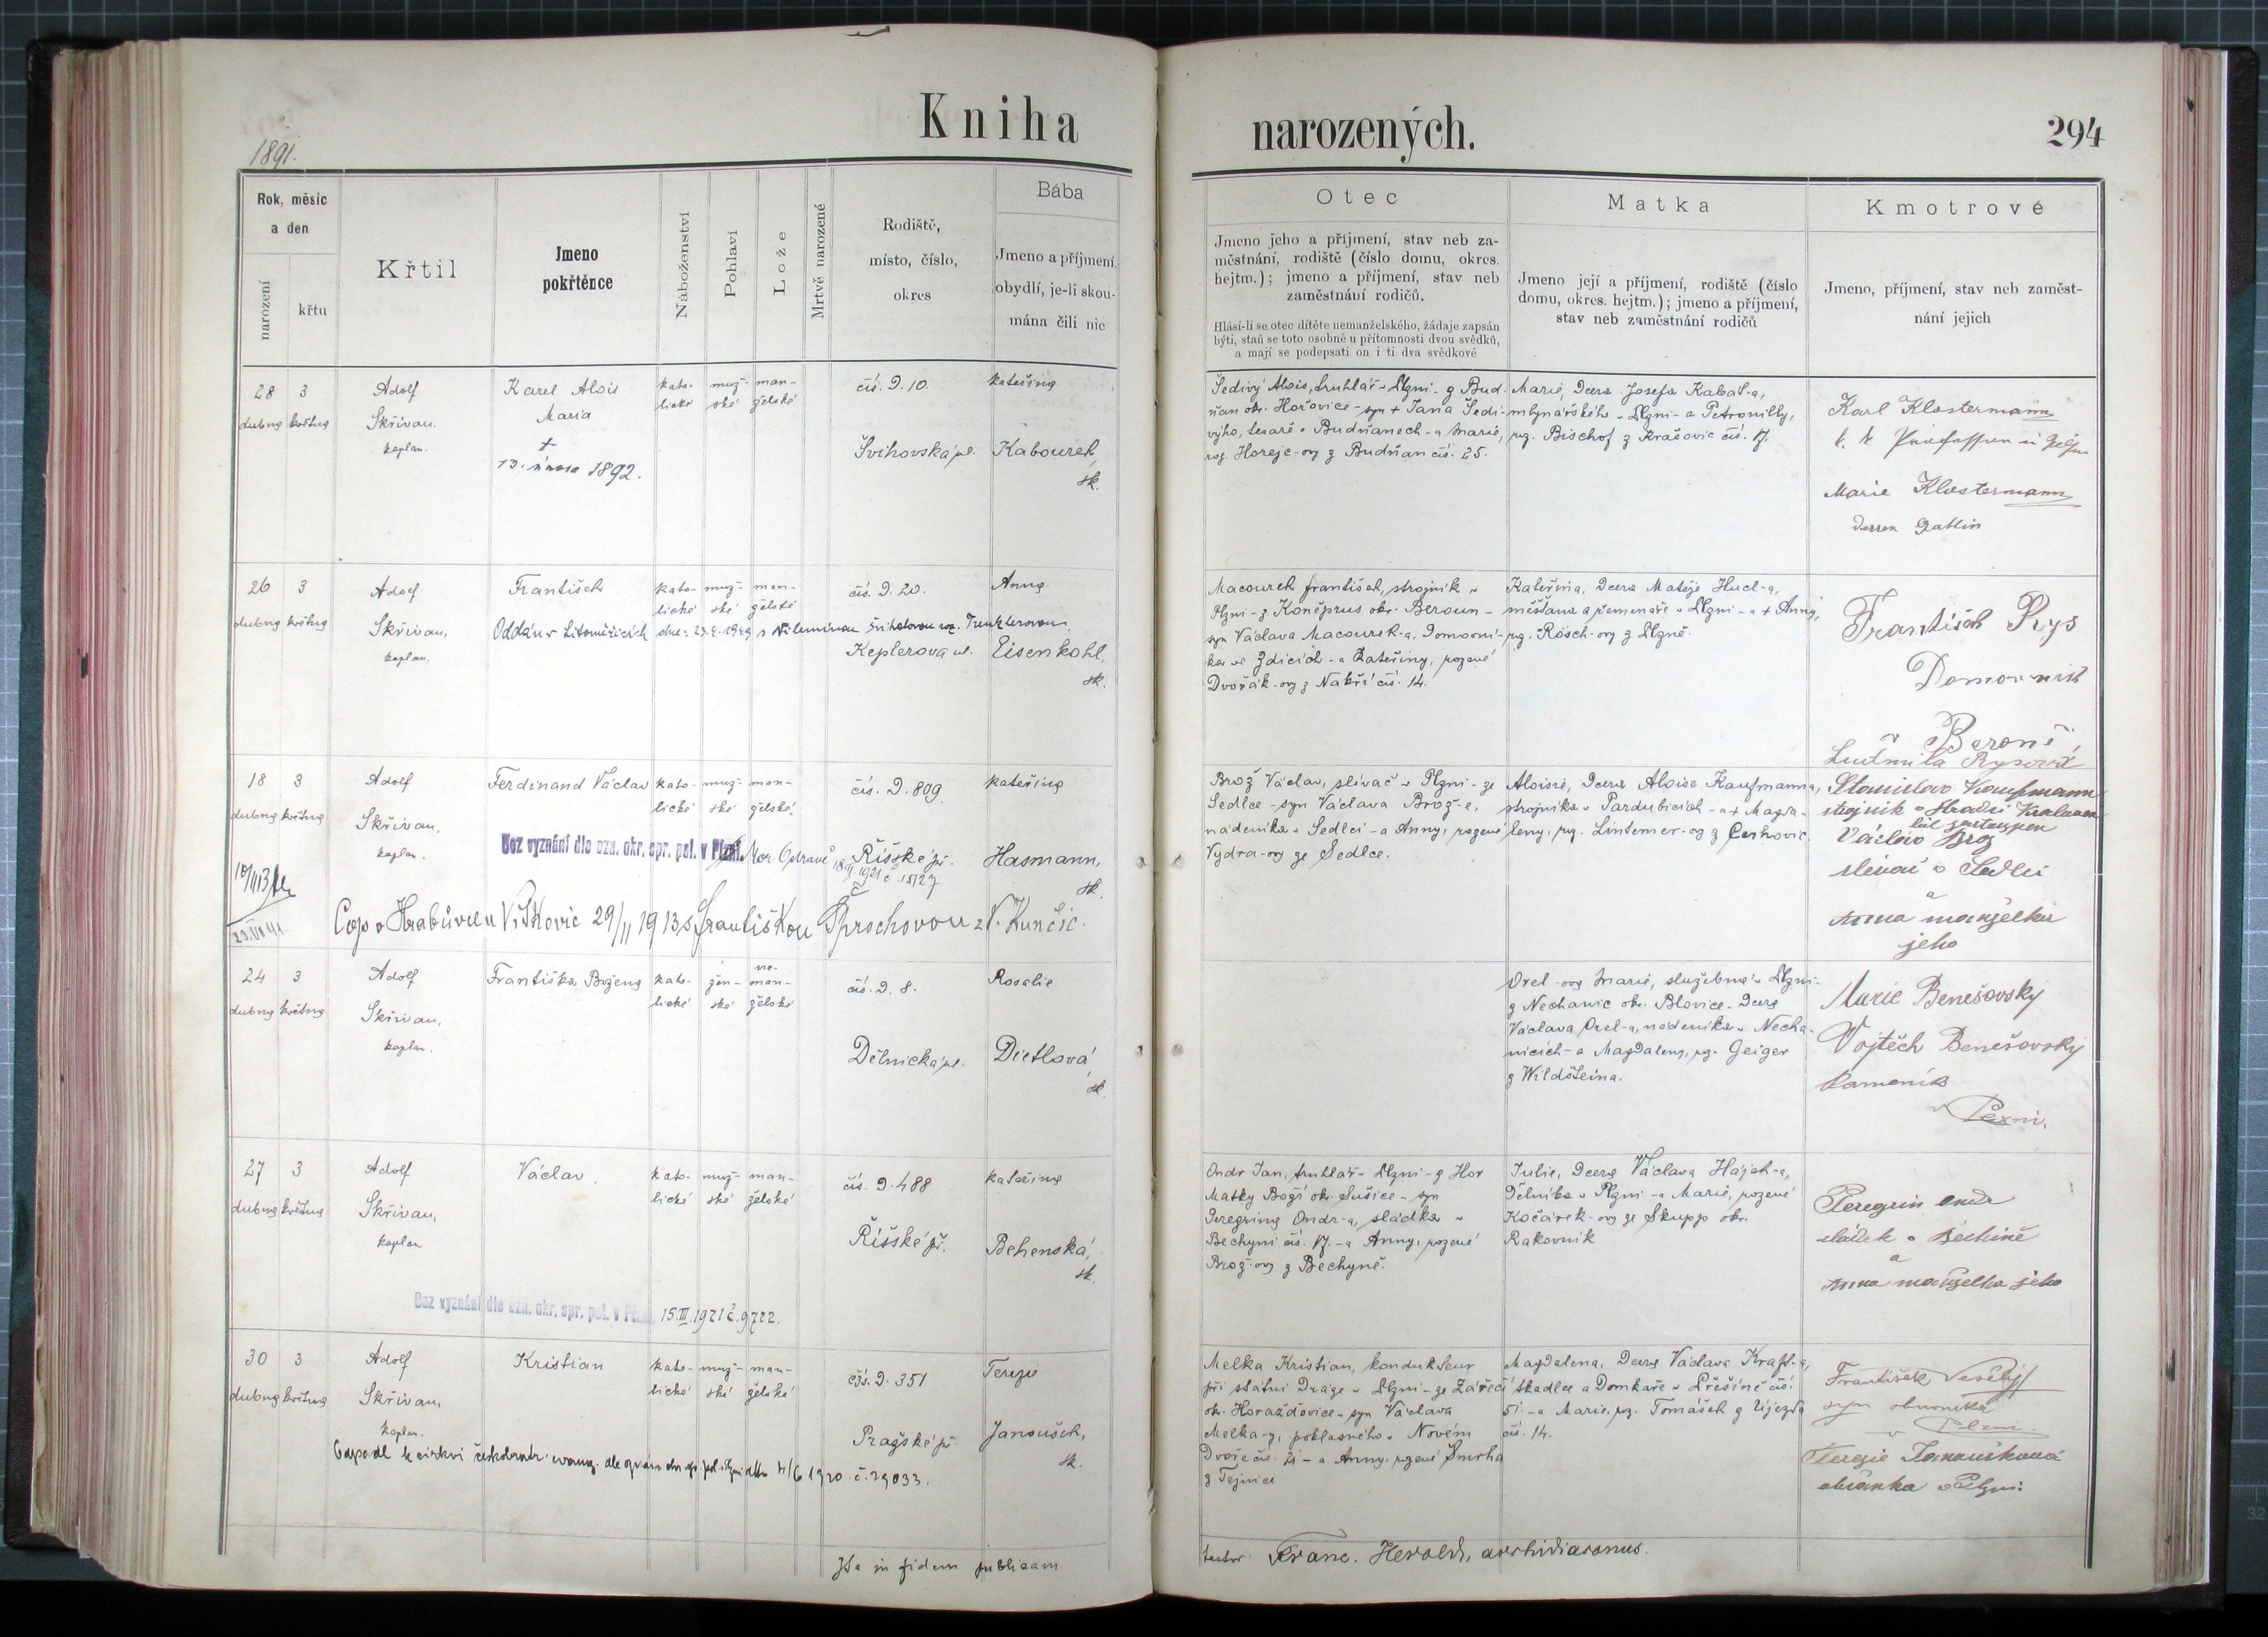 Kniha
narozených.
294
1891.
Rok, měsíc
a den
narození
křtu
Křtil
Jmeno
pokřtěnce
Náboženství
Pohlaví
Lože
Mrtvě narozené
Rodiště,
místo, číslo,
okres
Bába
Jmeno a příjmení,
obydlí, je-li skou-
mána čili nic
Otec
Jmeno jeho a příjmení, stav neb za-
městnání, rodiště (číslo domu, okres.
hejtm.); jmeno a příjmení, stav neb
zaměstnání rodičů.
Hlásí-li se otec dítěte nemanželského, žádaje zapsán
býti, staň se toto osobně u přítomnosti dvou svědků,
a mají se podepsati on i ti dva svědkové
Matka
Jmeno její a příjmení, rodiště (číslo
domu, okres. hejtm.); jmeno a příjmení,
stav neb zaměstnání rodičů
Kmotrové
Jmeno, příjmení, stav neb zaměst-
nání jejich
28 3
dubna května
Adolf
Skřivan,
kaplan.
Karel Alois
Maria
+
13. února 1892.
kato-
lické
muž-
ské
man-
želské
čís. d. 10.
Švihovská ul.
Kateřina
Kabourek,
sk.
Šedivý Alois, truhlář v Plzni - z Bud-
ňan okr. Hořovice - syn + Jana Šedi-
výho, tesaře v Budňanech - a Marie,
roz. Horejc-ovy z Budňan čís. 25.
Marie, dcera Josefa Kabát-a,
mlynářského v Plzni - a Petronilly,
roz. Bischof z Krašovic čís. 17.
Karl Klostermann
Marie Klostermann
dessen Gattin
26 3
dubna května
Adolf
Skřivan,
kaplan.
František
kato-
lické
muž-
ské
man-
želské
Oddán v Litoměřicích dne: 23.4.1949 s Vilemínou Švihotovou roz. Trunklerovou
čís. d. 20.
Keplerova ul.
Anna
Eisenkohl,
sk.
Macourek František, strojník v
Plzni - z Koněprus okr. Beroun -
syn Václava Macourek-a, domovní-
ka ve Zdicích - a Kateřiny, rozené
Dvořák-ovy z Nakří čís. 14.
Kateřina, dcera Matěje Hucl-a,
měšťana a řemenáře v Plzni - a + Anny,
roz. Rösch-ovy z Plzně.
František Rys
Domovník
v Berouně,
Ludmila Rysová
18 3
dubna května
Adolf
Skřivan,
kaplan.
Ferdinand Václav
kato-
lické
muž-
ské
man-
želské
Bez vyznání dle ozn. okr. spr. pol. v Plzni. Mor. Ostravě
18.II.1921 č. 15127
čís. d. 809
Říšské př.
Kateřina
Hasmann,
sk.
Cop. v Hrabůvce u Vítkovic 29/II 1913 s Františkou Prochovou z V. Kunčic.
Brož Václav, slévač v Plzni - ze
Sedlce - syn Václava Brož-e,
nádeníka v Sedlci - a Anny, rozené
Vydra-ovy ze Sedlce.
Aloisie, dcera Aloise Kaufmanna,
strojníka v Pardubicích - a + Magda-
leny, roz. Lintemer-ovy z Čerhovic.
Stanislav Kaufmann
Václav Brož
slévač v Sedlci
a
Anna manželka
jeho
24 3
dubna května
Adolf
Skřivan,
kaplan.
Františka Božena
kato-
lické
žen-
ské
ne-
man-
želské
čís. d. 8.
Dělnická ul.
Rosalie
Dietlová,
sk.
Orel-ova Marie, služebná v Plzni -
z Nechanic okr. Blovice - dcera
Václava Orel-a, nádeníka v Necha-
nicích - a Magdaleny, roz. Geiger
z Wildšteina.
Marie Benešovský
Vojtěch Benešovský
kameník
v Plzni.
27 3
dubna května
Adolf
Skřivan,
kaplan
Václav.
kato-
lické
muž-
ské
man-
želské
čís. d. 488
Říšské př.
Kateřina
Behenská,
sk.
Bez vyznání dle ozn. okr. spr. pol. v Plzni 15.III.1921 č. 9722.
Ondr Jan, truhlář v Plzni - z Hor
Matky Boží okr. Sušice - syn
Peregrina Ondr-a, sládka v
Bechyni čís. 17. - a Anny, rozené
Brož-ovy z Bechyně.
Julie, dcera Václava Hájek-a,
dělníka v Plzni - a Marie, rozené
Kočárek-ovy ze Skupp okr.
Rakovník
Peregrin Ondr
sládek v Bechině
a
Anna manželka jeho
30 3
dubna května
Adolf
Skřivan,
kaplan.
Kristian
kato-
lické
muž-
ské
man-
želské
čís. d. 351
Pražské př.
Terezie
Janoušek,
sk.
č. 29033.
Melka Kristian, kondukteur
při státní dráze v Plzni - ze Zářečí
okr. Horažďovice - syn Václava
Melka-y, poklasného v Novém
Dvoře čís. 21 - a Anny, rozené Smrha
z Tejnice
Magdalena, dcera Václava Kraft-a,
tkadlce a domkáře v Přešíně čís.
51. - a Marie, roz. Tomášek z Újezda
čís. 14.
František Veselý
syn obuvníka
v Plzni.
Terezie Janoušková
občanka v Plzni.
Ita in fidem publicam
testor. Franc. Herold, archidiaconus.